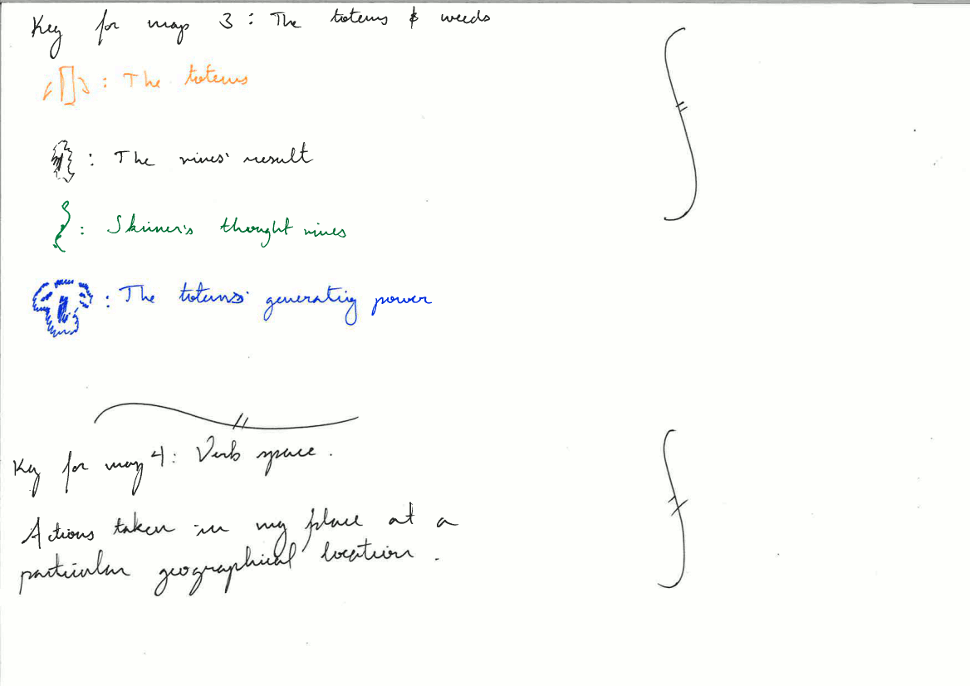 Key for map 3: The totems & weeds
: The totems
: The vines' result
: Skinner's thought vines
: The totems' generating power
Key for map 4: Verb space.
Actions taken in my place at a
particular geographical location.